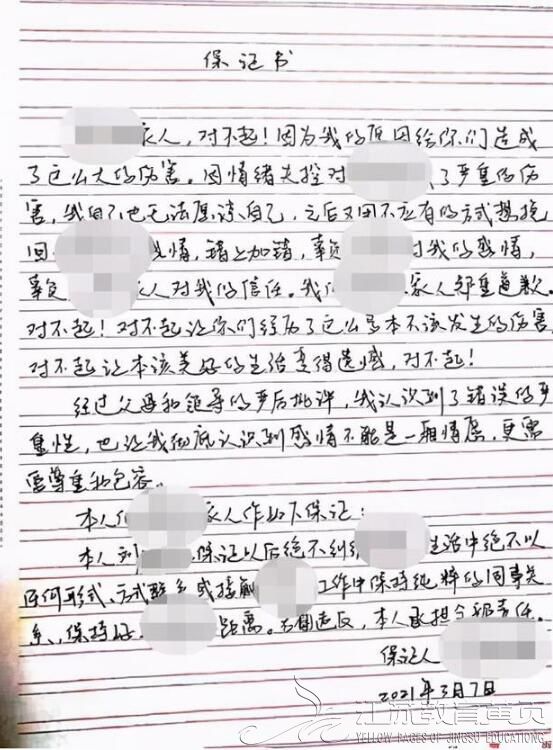 保证书
家人，对不起！因为我的原因给你们造成
了这么大的伤害。因情绪失控对 了严重的伤
害，我自己也无法原谅自己，之后又因不应有的方式挽
回 感情，错上加错，辜负 对我的感情，
辜负 家人对我的信任。我 家人郑重道歉。
对不起！对不起让你们经历了这么多本不该发生的伤害，
对不起让本该美好的生活变得遗憾，对不起！
经过父母和领导的严厉批评，我认识到了错误的严
重性，也让我彻底认识到感情不能是一厢情愿，更需
要尊重和包容。
本人 家人作如下保证：
本人 保证以后绝不纠 生活中绝不以
任何形式、方式联系或接触 工作中保持纯粹的同事关
系，保持好 距离。若有违反，本人承担全部责任。
保证人
2021年3月7日
江苏教育黄页
YELLOW PAGES OF JINGSU EDUCATIONG